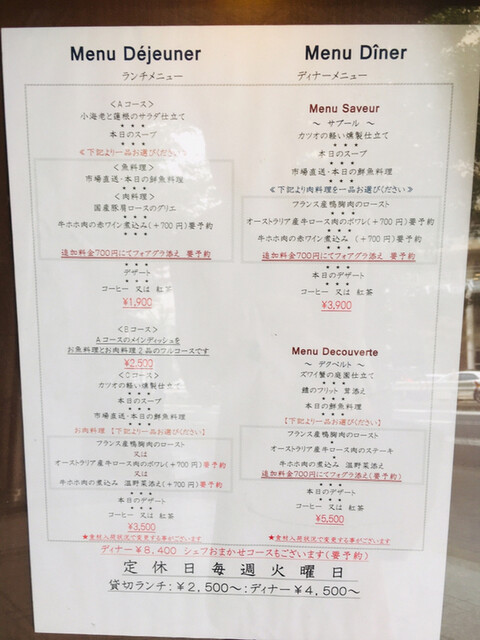 Menu Déjeuner
ランチメニュー
<Aコース>
小海老と蓮根のサラダ仕立て
★ ★ ★
本日のスープ
★ ★ ★
≪下記より一品お選びください≫
<魚料理>
市場直送・本日の鮮魚料理
★ ★ ★
<肉料理>
国産豚肩ロースのグリエ
★ ★ ★
牛ホホ肉の赤ワイン煮込み(+700円)要予約
追加料金700円にてフォアグラ添え 要予約
★ ★ ★
デザート
★ ★ ★
コーヒー 又は 紅茶
¥1,900
<Bコース>
Aコースのメインディッシュを
お魚料理とお肉料理2品のフルコースです
¥2,500
<Cコース>
カツオの軽い燻製仕立て
★ ★ ★
本日のスープ
★ ★ ★
市場直送・本日の鮮魚料理
★ ★ ★
お肉料理【下記より一品お選びください】
フランス産鴨胸肉のロースト
又は
オーストラリア産牛ロース肉のポワレ(+700円)要予約
又は
牛ホホ肉の煮込み 温野菜添え(+700円)要予約
★ ★ ★
本日のデザート
★ ★ ★
コーヒー 又は 紅茶
¥3,500
★食材入荷状況で変更する事がございます
Menu Dîner
ディナーメニュー
Menu Saveur
~ サブール ~
カツオの軽い燻製仕立て
★ ★ ★
本日のスープ
★ ★ ★
市場直送・本日の鮮魚料理
★ ★ ★
≪下記より肉料理を一品お選びください≫
フランス産鴨胸肉のロースト
★ ★ ★
オーストラリア産牛ロース肉のポワレ(+700円)要予約
★ ★ ★
牛ホホ肉の赤ワイン煮込み (+700円)要予約
★ ★ ★
追加料金700円にてフォアグラ添え 要予約
★ ★ ★
本日のデザート
★ ★ ★
コーヒー 又は 紅茶
¥3,900
Menu Decouverte
~ デクベルト ~
ズワイ蟹の庭園仕立て
★ ★ ★
のフリット 茸添え
★ ★ ★
本日の鮮魚料理
★ ★ ★
【下記より一品お選びください】
フランス産鴨胸肉のロースト
★ ★ ★
オーストラリア産牛ロース肉のステーキ
★ ★ ★
牛ホホ肉の煮込み 温野菜添え
追加料金700円にてフォアグラ添え(要予約)
★ ★ ★
本日のデザート
★ ★ ★
コーヒー 又は 紅茶
¥5,500
★食材入荷状況で変更する事がございます
ディナー¥8,400 シェフおまかせコースもございます(要予約)
定休日毎週火曜日
貸切ランチ:¥2,500~:ディナー¥4,500~